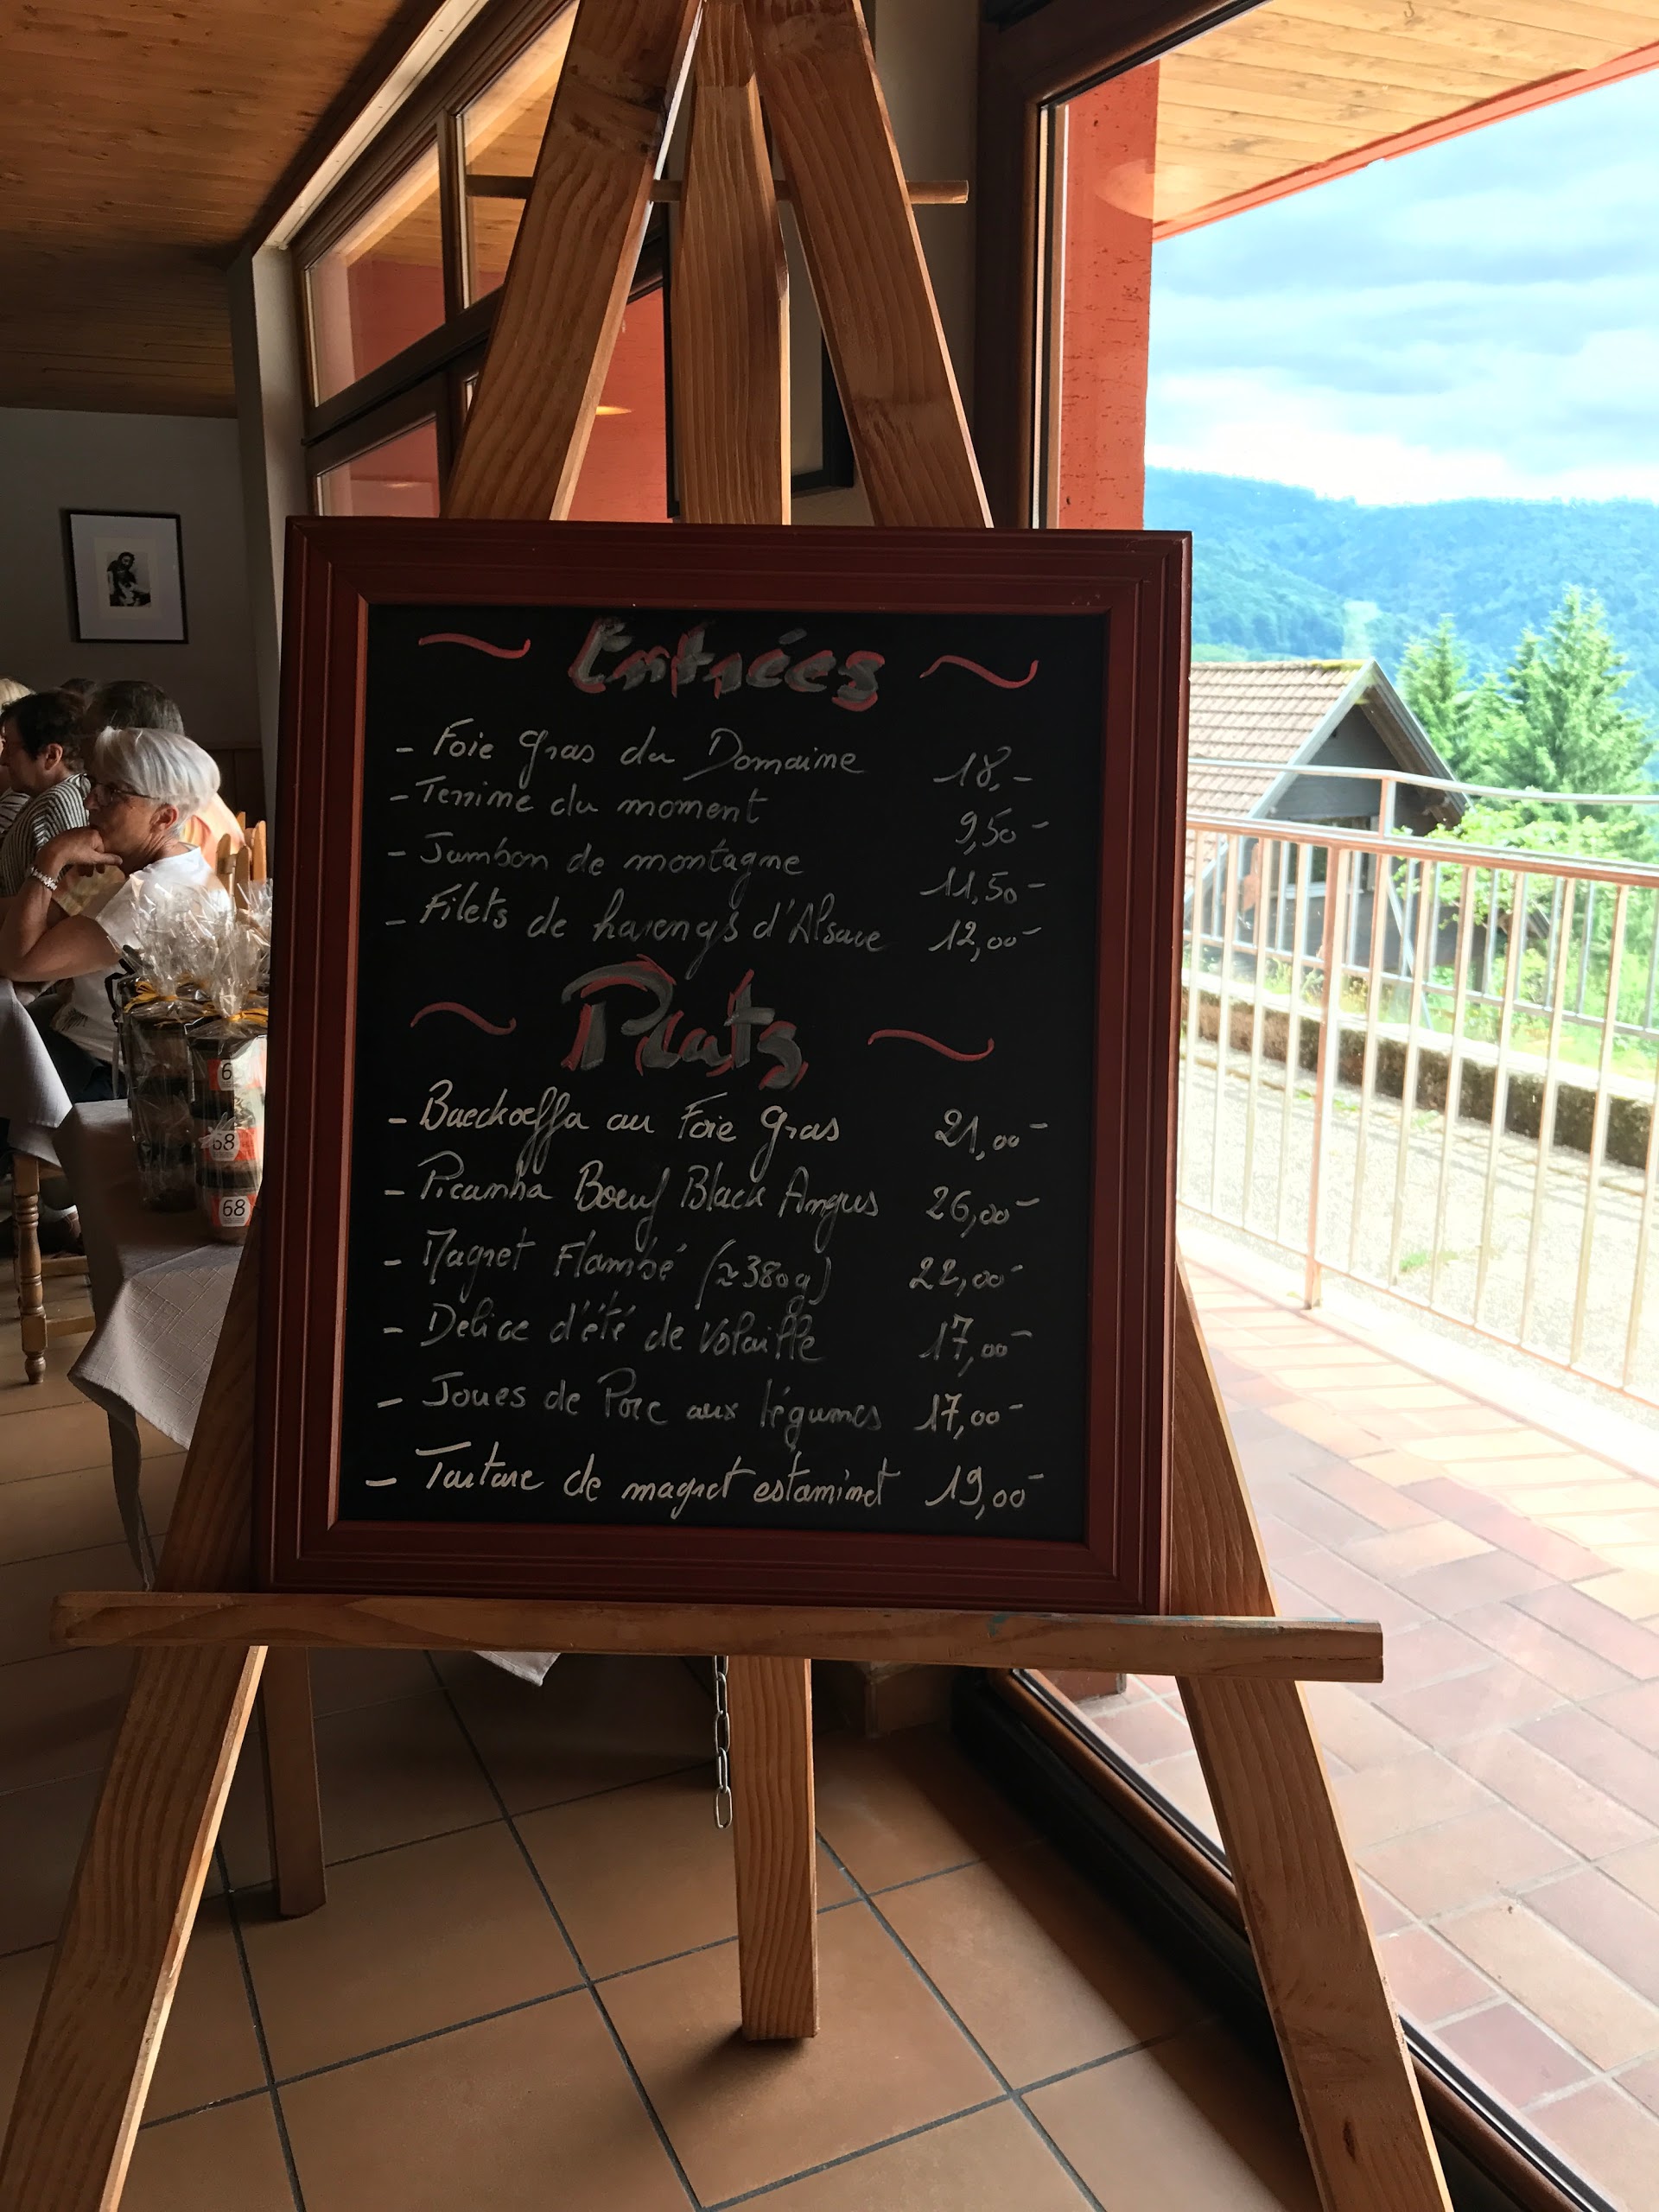 ~ Entrées ~
- Foie Gras du Domaine 18,-
- Terrine du moment 9,50-
- Jambon de montagne 11,50-
- Filets de harengs d'Alsace 12,00-
~ Plats ~
- Baeckoeffa au Foie Gras 21,00-
- Picanha Boeuf Black Angus 26,00-
- Magret Flambé (≈380g) 22,00-
- Délice d'été de Volaille 17,00-
- Joues de Porc aux légumes 17,00-
- Tartare de magret estaminet 19,00-
6
68
68